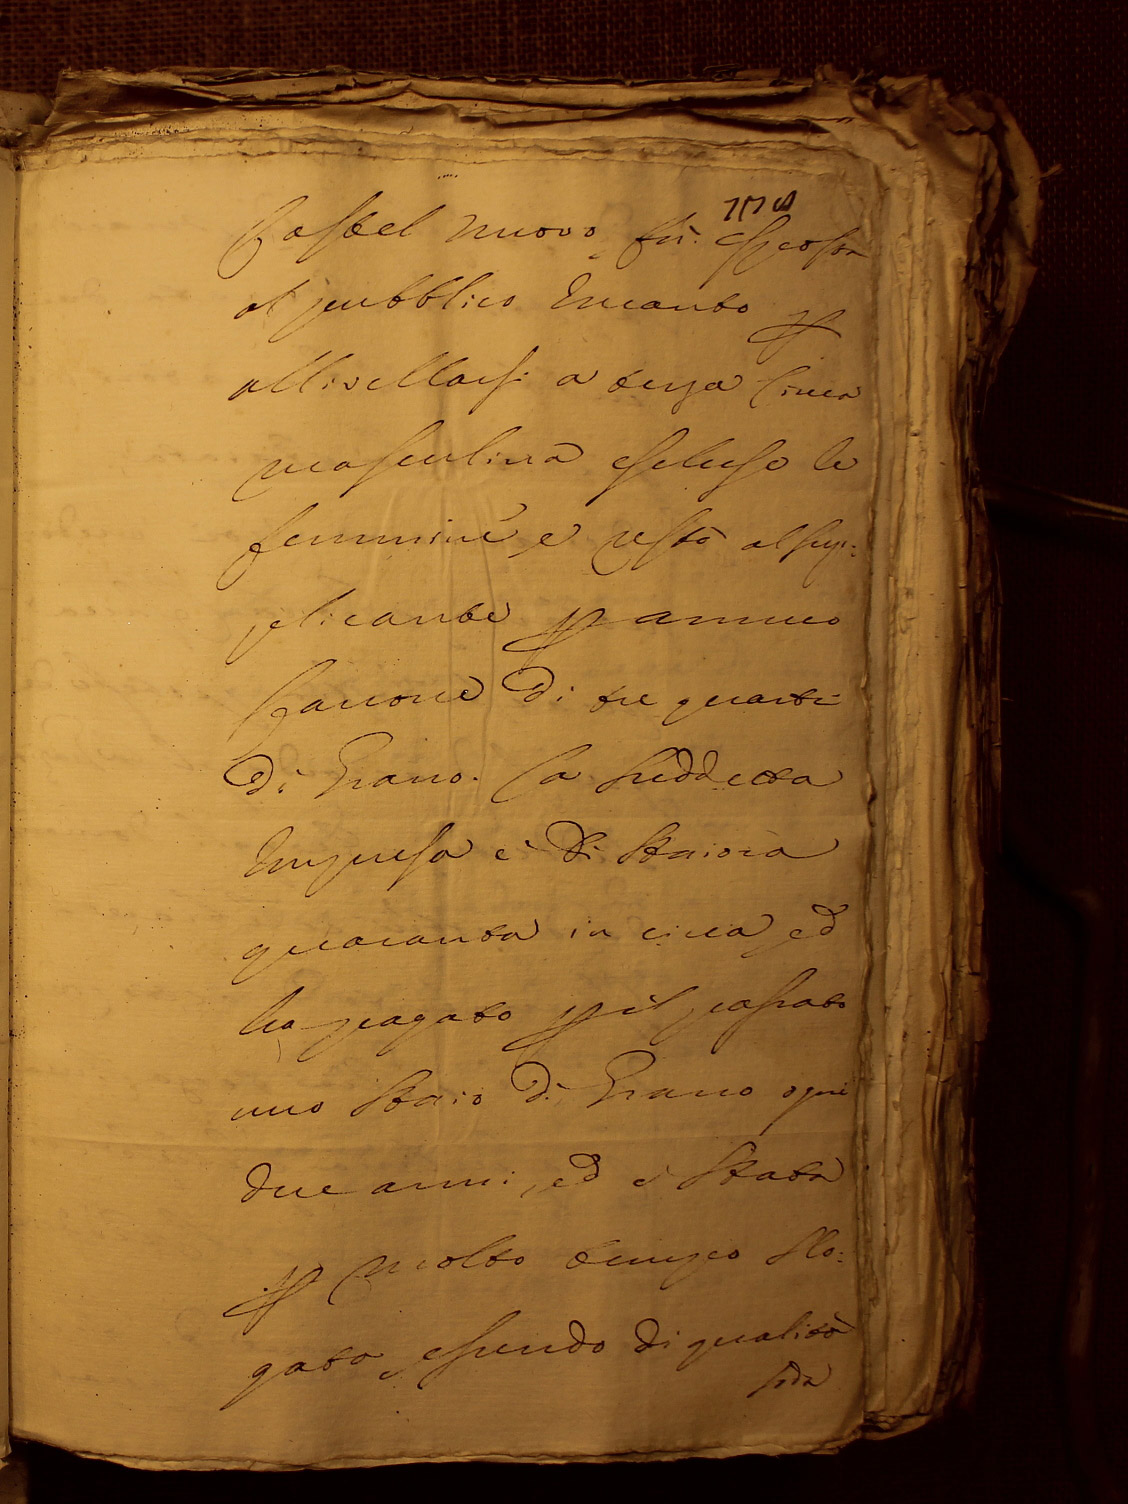 Castel nuovo fù esposta
al pubblico Incanto p
allivellarsi a terza linea
masculina escluse le
femmine, e restò al sup:
plicante p annuo
Canone di tre quarti
di Grano. La suddetta
Impresa è di Staiora
quaranta in circa, ed
ha pagato p il passato
uno Staio di Grano ogni
due anni, ed è stata
p molto tempo slo:
gata, essendo di qualità
soda